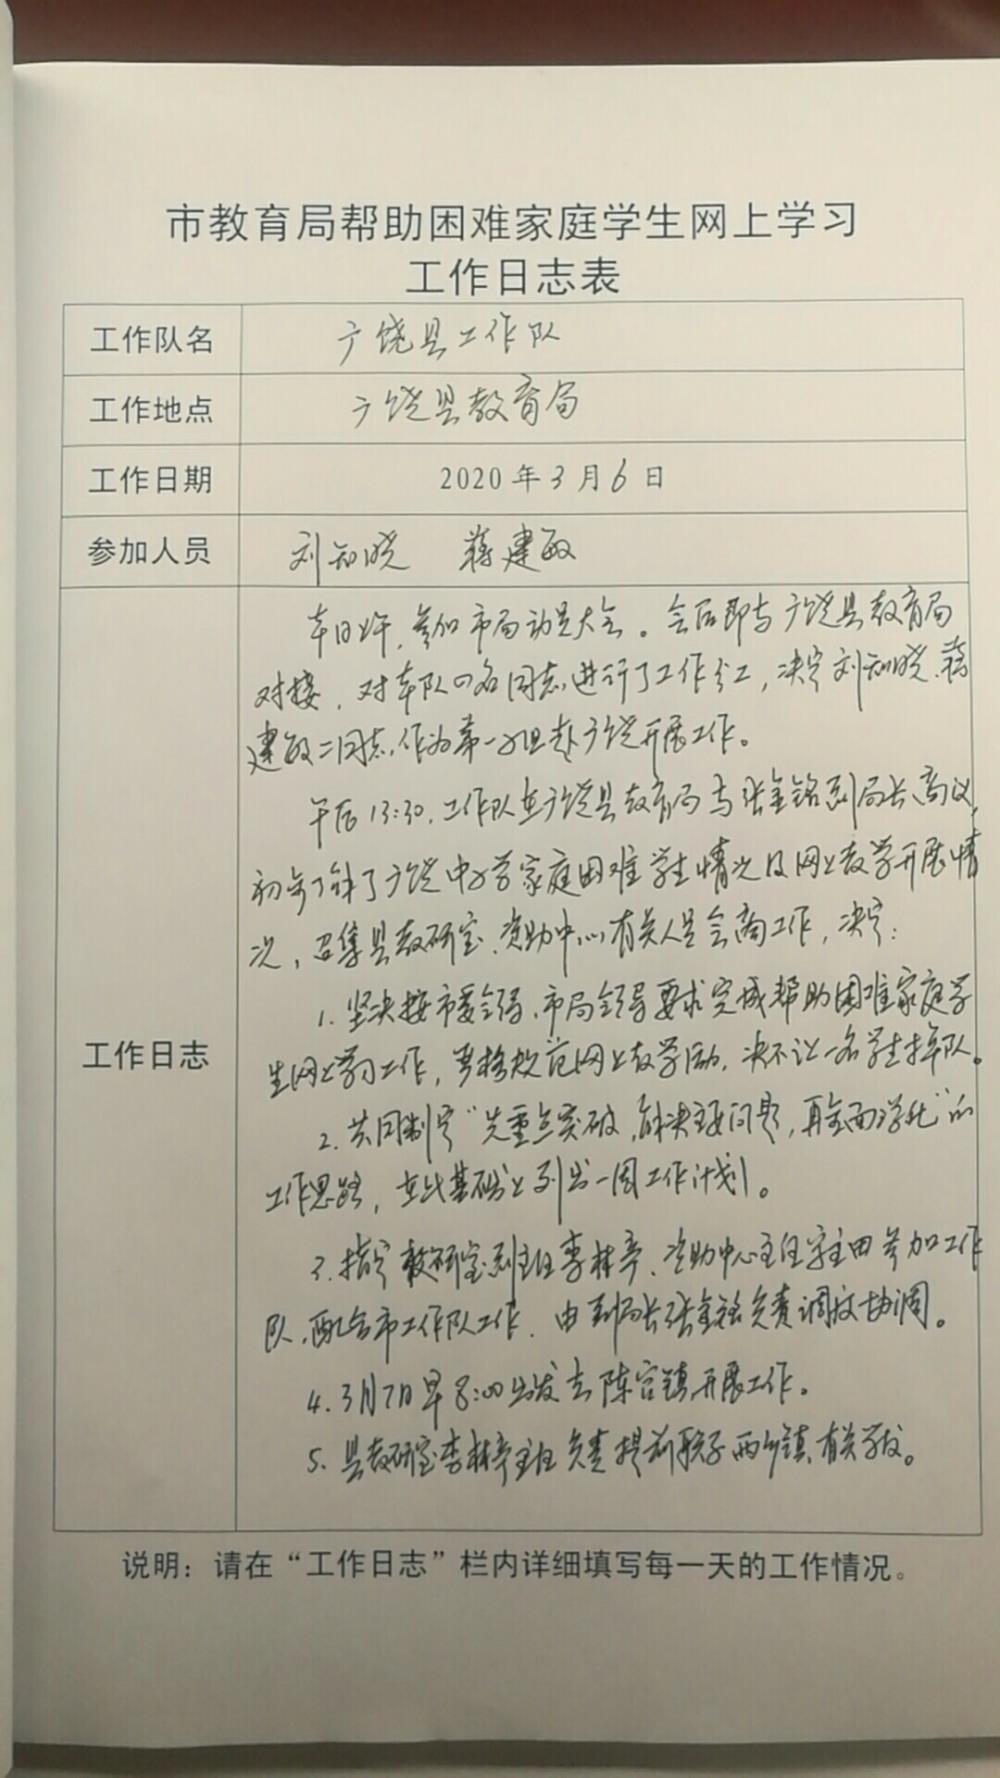 市教育局帮助困难家庭学生网上学习
工作日志表
工作队名 广饶县工作队
工作地点 广饶县教育局
工作日期 2020年3月6日
参加人员 刘知晓 蒋建敏
工作日志
本日上午，参加市局动员大会。会后即与广饶县教育局
对接，对本队四名同志进行了工作分工，决定刘知晓、蒋
建敏二同志作为第一小组赴广饶开展工作。
午后13:30，工作队在广饶县教育局与张金铭副局长商议，
初步了解了广饶中小学家庭困难学生情况及网上教学开展情
况，召集县教研室、资助中心有关人员会商工作，决定：
1. 坚决按市委领导、市局领导要求完成帮助困难家庭学
生网上学习工作，严格规范网上教学活动，决不让一名学生掉队。
2. 共同制定“先重点突破，解决主要问题，再全面深化”的
工作思路，在此基础上列出一周工作计划。
3. 指定教研室副主任李林亭、资助中心主任宋主田参加工作
队，配合市工作队工作，由副局长张金铭负责调度协调。
4. 3月7日早8:00出发去陈官镇开展工作。
5. 县教研室李林亭主任负责提前联系两乡镇有关学校。
说明：请在“工作日志”栏内详细填写每一天的工作情况。